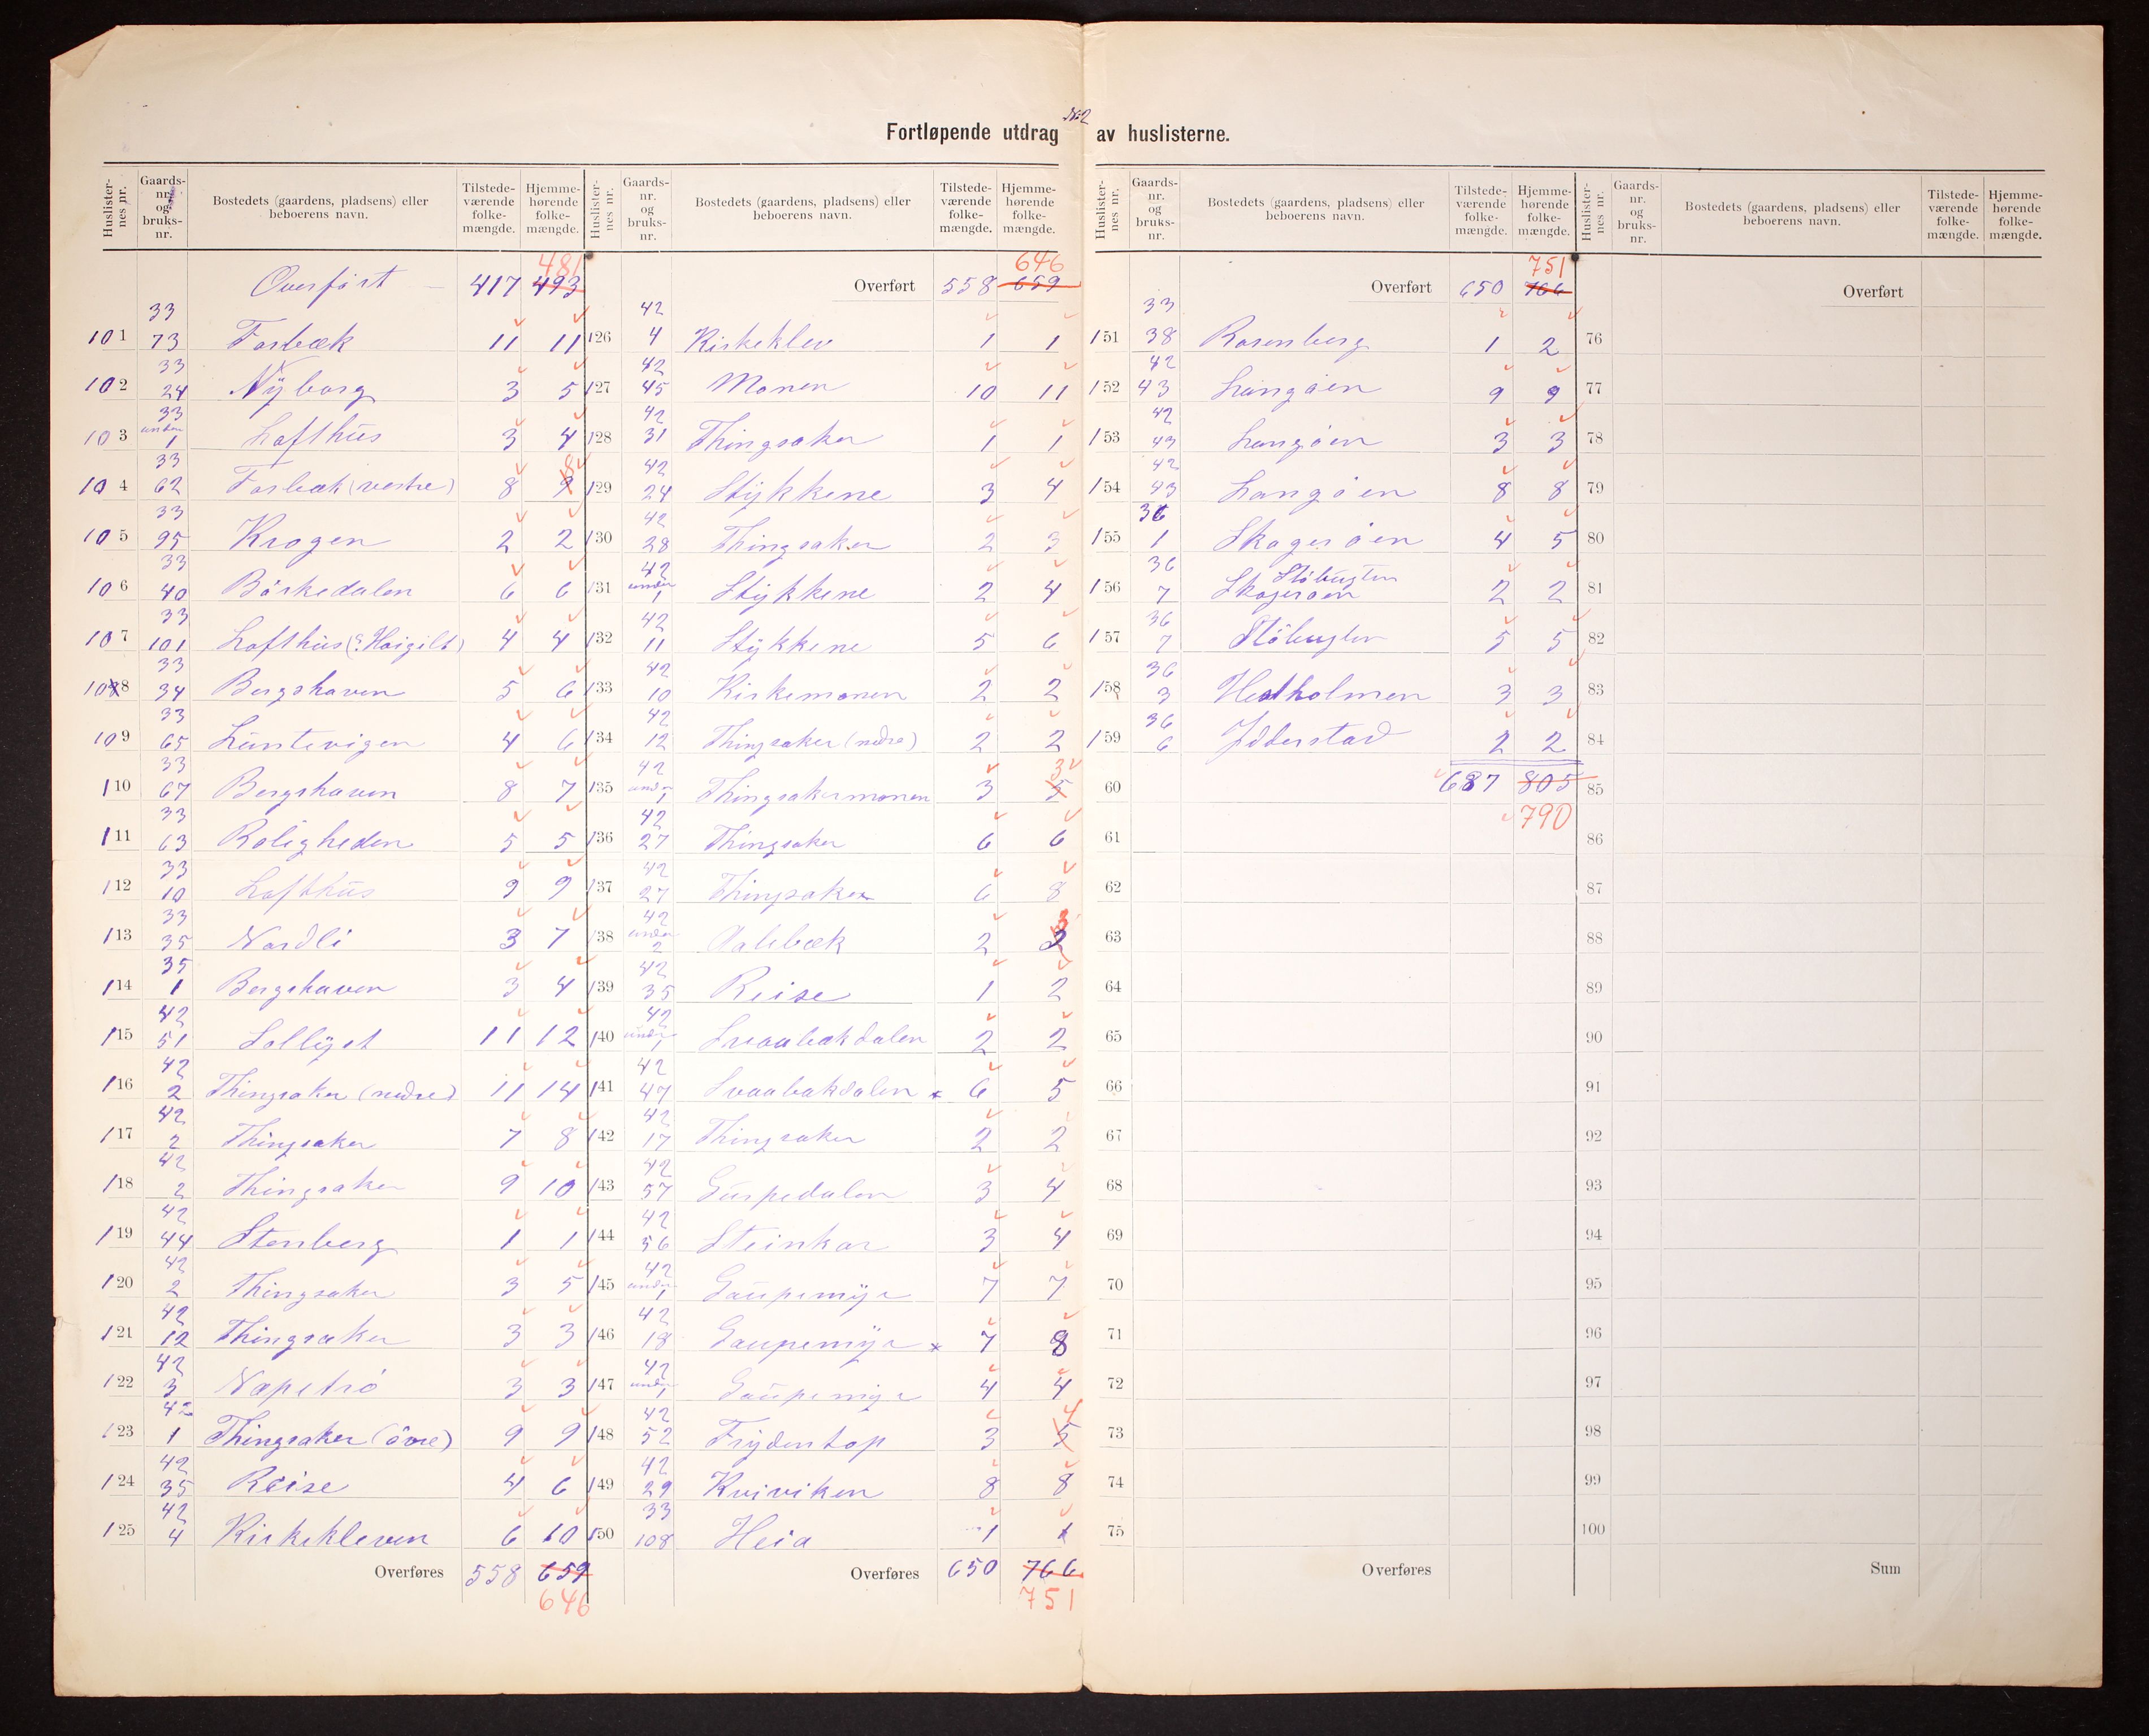 No 2
Fortløpende utdrag av huslisterne.
Huslisternes nr. Gaards-nr. og bruks-nr. Bostedets (gaardens, pladsens) eller beboerens navn. Tilstedeværende folkemængde. Hjemmehørende folkemængde.
Overført 417 493 481
101 33 73 Forbæk 11 11
102 33 24 Nÿborg 3 5
103 33 under 1 Lofthus 3 4
104 33 62 Forbæk (vestre) 8 9 8
105 33 95 Krogen 2 2
106 33 40 Börkedalen 6 6
107 33 101 Lofthus 4 4
108 33 34 Bergshaven 5 6
109 33 65 Luntevigen 4 6
110 33 67 Bergshaven 8 7
111 33 63 Roligheden 5 5
112 33 10 Lofthus 9 9
113 33 35 Nordli 3 7
114 35 1 Bergshaven 3 4
115 42 51 Sollÿst 11 12
116 42 2 Thingsaker (nedre) 11 14
117 42 2 Thingsaker 7 8
118 42 2 Thingsaker 9 10
119 42 44 Stenberg 1 1
120 42 2 Thingsaker 3 5
121 42 12 Thingsaker 3 3
122 42 3 Næpetrö 3 3
123 42 1 Thingsaker (övre) 9 9
124 42 35 Reise 4 6
125 42 4 Kirkekleven 6 10
Overføres 558 659 646
Huslisternes nr. Gaards-nr. og bruks-nr. Bostedets (gaardens, pladsens) eller beboerens navn. Tilstedeværende folkemængde. Hjemmehørende folkemængde.
Overført 558 659 646
126 42 4 Kirkeklev 1 1
127 42 45 Monen 10 11
128 42 31 Thingsaker 1 1
129 42 24 Stÿkkene 3 4
130 42 28 Thingsaker 2 3
131 42 under 1 Stÿkkene 2 4
132 42 11 Stÿkkene 5 6
133 42 10 Kirkemonen 2 2
134 42 12 Thingsaker (nedre) 2 2
135 42 under 1 Thingsakermonen 3 5 3
136 42 27 Thingsaker 6 6
137 42 27 Thingsaker 6 8
138 42 under 2 Aalebæk 2 2 3
139 42 35 Reise 1 2
140 42 under 1 Svaabækdalen 2 2
141 42 47 Svaabakdalen * 6 5
142 42 17 Thingsaker 2 2
143 42 57 Guspedalen 3 4
144 42 56 Steinkar 3 4
145 42 under 1 Gaupemÿr 7 7
146 42 18 Gaupemÿr * 7 8
147 42 under 1 Gaupemÿr 4 4
148 42 52 Frÿdentop 3 5 4
149 42 29 Kviviken 8 8
150 33 108 Heia 1 1
Overføres 650 766 751
Huslisternes nr. Gaards-nr. og bruks-nr. Bostedets (gaardens, pladsens) eller beboerens navn. Tilstedeværende folkemængde. Hjemmehørende folkemængde.
Overført 650 766 751
151 33 38 Rosenberg 1 2
152 42 43 Langöen 9 9
153 42 43 Langöen 3 3
154 42 43 Langöen 8 8
155 36 1 Skogeröen 4 5
156 36 7 Stöbugten Skogeröen 2 2
157 36 7 Stöbugten 5 5
158 36 3 Hestholmen 3 3
159 36 6 Ydderstad 2 2
60 687 805
61 790
62
63
64
65
66
67
68
69
70
71
72
73
74
75
Overføres
Huslisternes nr. Gaards-nr. og bruks-nr. Bostedets (gaardens, pladsens) eller beboerens navn. Tilstedeværende folkemængde. Hjemmehørende folkemængde.
Overført
76
77
78
79
80
81
82
83
84
85
86
87
88
89
90
91
92
93
94
95
96
97
98
99
100
Sum